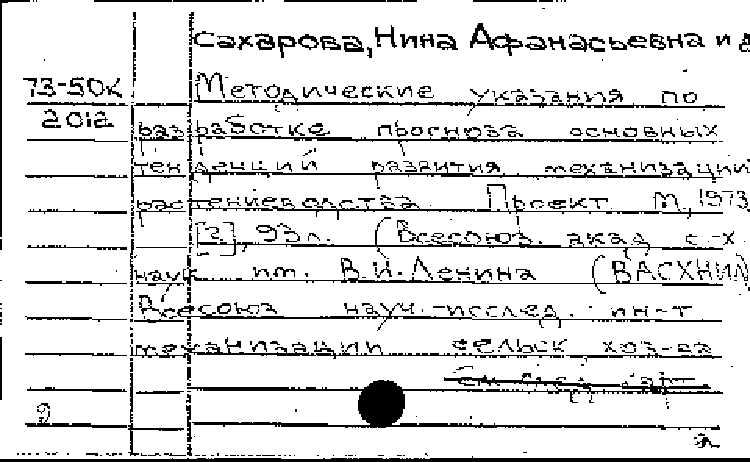 Сахарова, Нина Афанасьевна и д
73-50К Методические указания по
2012 разработке прогноза основных
тенденций развития механизации
растениеводства Проект М, 1973
[2], 93л. (Всесоюз. акад с.-х.
наук им. В.И. Ленина (ВАСХНИЛ)
Всесоюз науч.-исслед. ин-т
механизации сельск хоз-ва